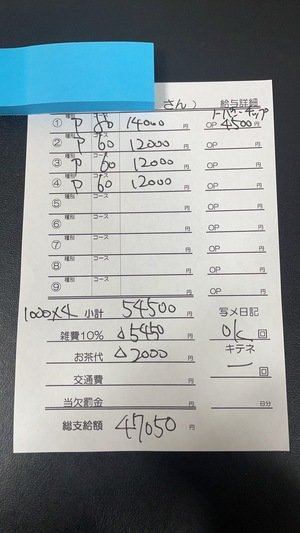 さん） 給与詳細
① 種別 P コース 80 14000 円 ローション・チップ OP 4500 円
② 種別 P コース 60 12000 円 OP 円
③ 種別 P コース 60 12000 円 OP 円
④ 種別 P コース 60 12000 円 OP 円
⑤ 種別 コース 円 OP 円
⑥ 種別 コース 円 OP 円
⑦ 種別 コース 円 OP 円
⑧ 種別 コース 円 OP 円
⑨ 種別 コース 円 OP 円
1000×4 小計 54500 円 写メ日記
雑費10% △5450 円 ok 回
お茶代 △2000 円 キテネ
交通費 円 ー 回
当欠罰金 円 日分
総支給額 47050 円